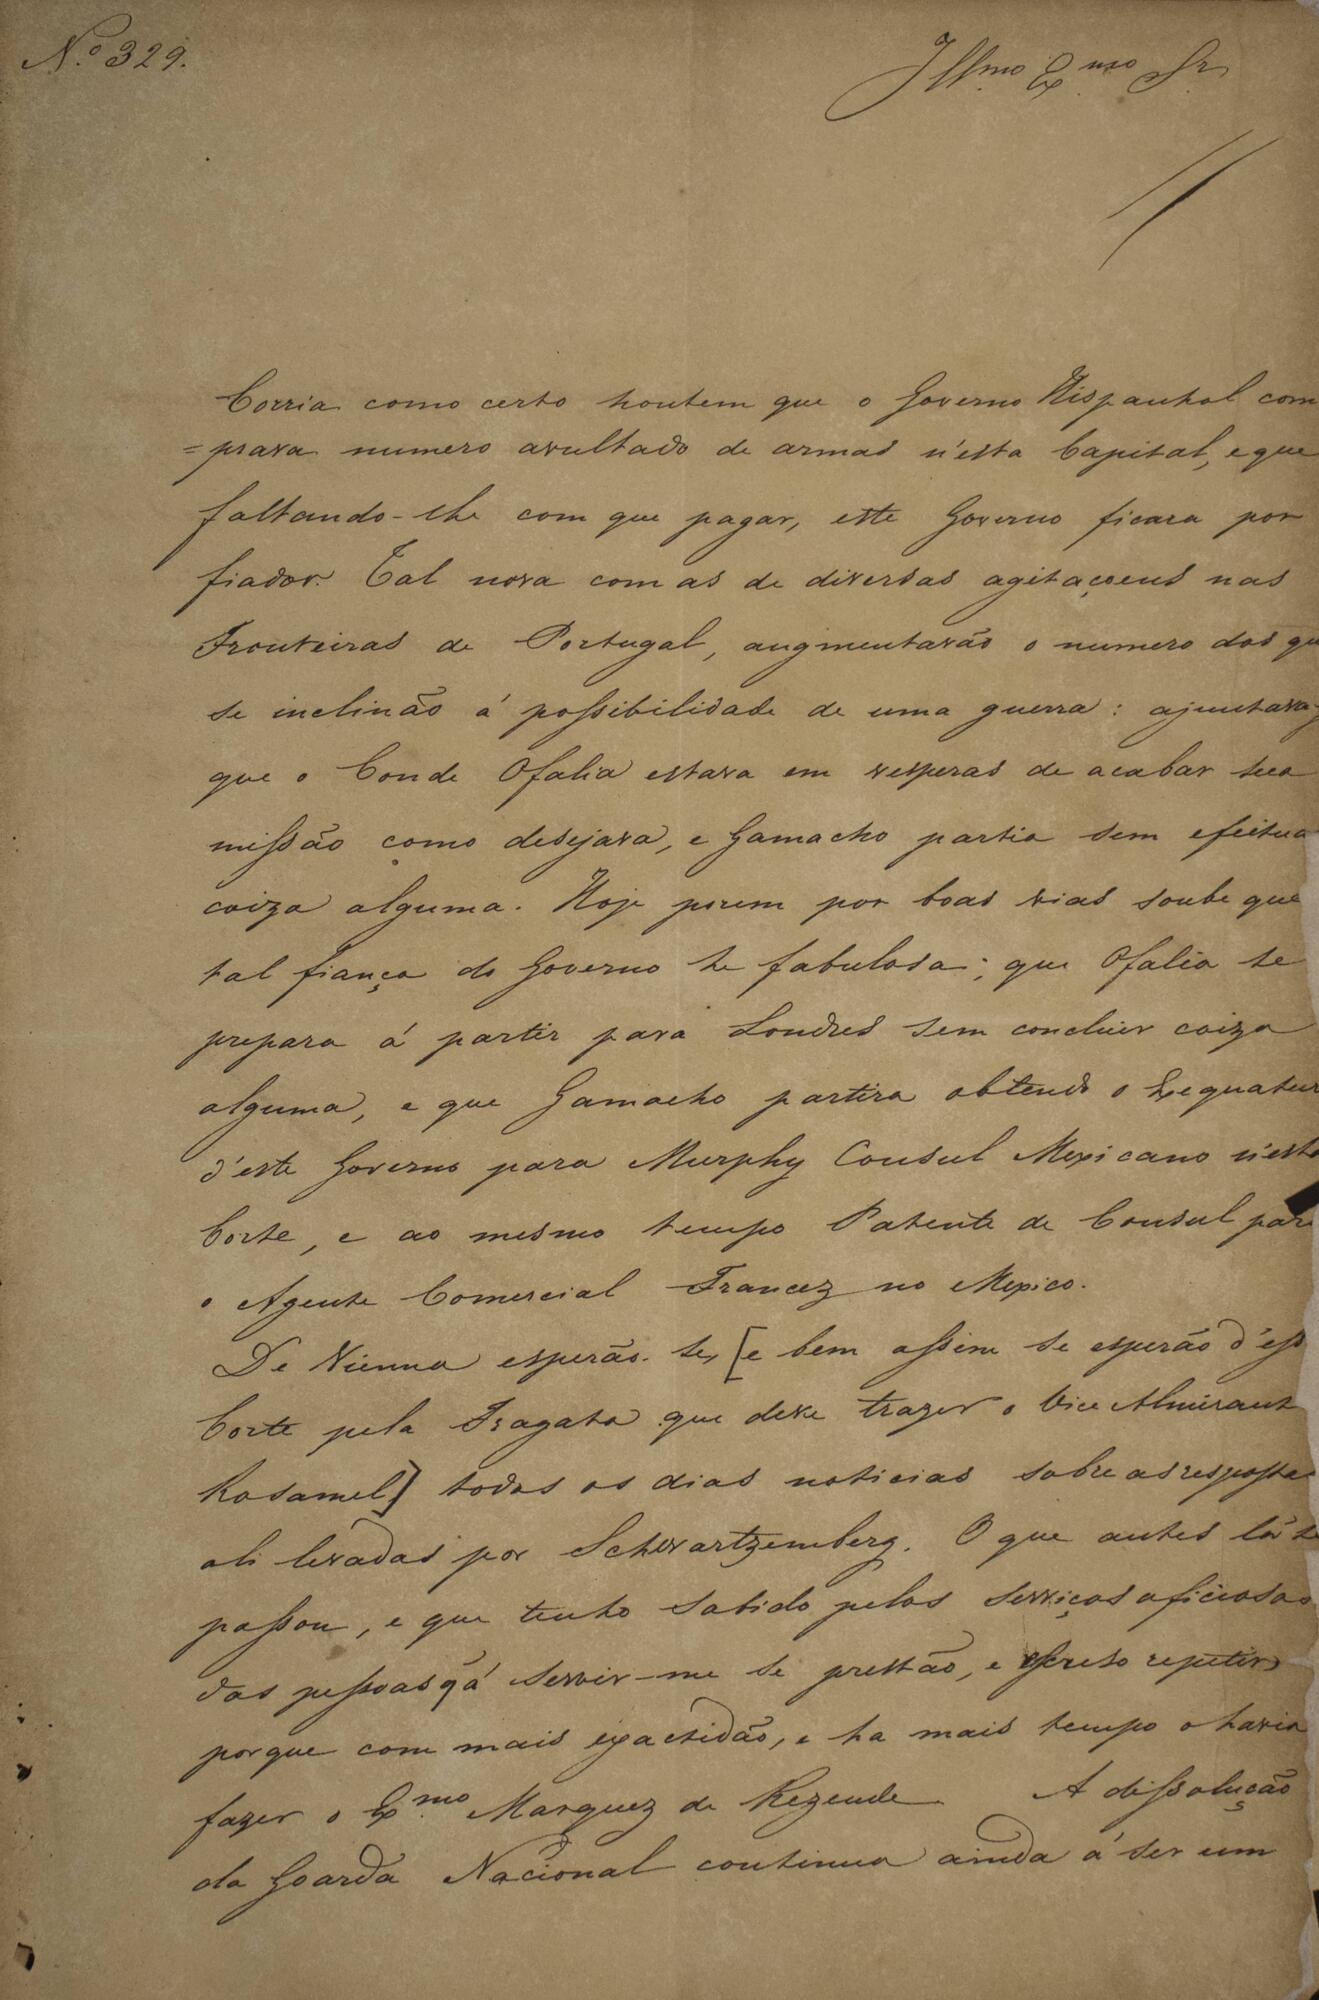 N.º 329.
Illmo Exmo Sr.
Corria como certo hontem que o Governo Hispanhol com
=prava numero avultado de armas n'esta Capital, e que
faltando-lhe com que pagar, este Governo ficara por
fiador. Tal nova com as de diversas agitaçoens nas
Fronteiras de Portugal, augmentavão o numero dos que
se inclinão á possibilidade de uma guerra: ajuntava-
que o Conde Ofalia estava em vesperas de acabar sua
missão como desejava, e Gamacho partia sem efeitua
coiza alguma. Hoje porem por boas vias soube que
tal fiança do Governo he fabulosa; que Ofalia se
prepara á partir para Londres sem concluir coiza
alguma, e que Gamacho partira obtendo o Exequatur
d'este Governo para Murphy Consul Mexicano n'esta
Corte, e ao mesmo tempo Patente de Consul para
o Agente Comercial Francez no Mexico.
De Vienna esperão-se, [e bem assim se esperão d'ess
Corte pela Fragata que deve trazer o Vice Almirant
Rosamel] todos os dias noticias sobre as respostas
ali levadas por Schwartzemberg. O que antes lá se
passou, e que tenho sabido pelos serviços oficiosos
das pessoas q á servir-me se prestão, e repetir
porque com mais exactidão, e ha mais tempo o havia
fazer o Exmo Marquez de Rezende. A dissolução
da Goarda Nacional continua ainda á ser um